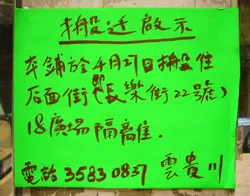 搬迁啟示
本鋪於4月21日搬往
后面街(即長樂街22號)
18廣場隔離.
電話 35830837 雲貴川